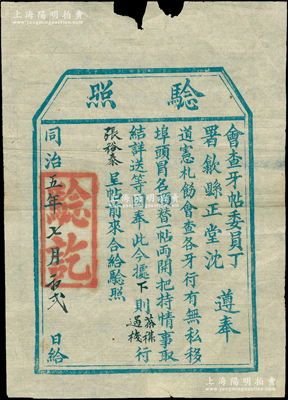 上海陽明拍賣
驗照
會查牙帖委員丁
署歙縣正堂沈 遵奉
道憲札飭會查各牙行有無私移
埠頭冒名頂替一帖兩開把持情事取
結詳送等因奉此今據下則落樸過棧行
張裕泰呈帖前來合給驗照
同治五年七月 日給
驗訖